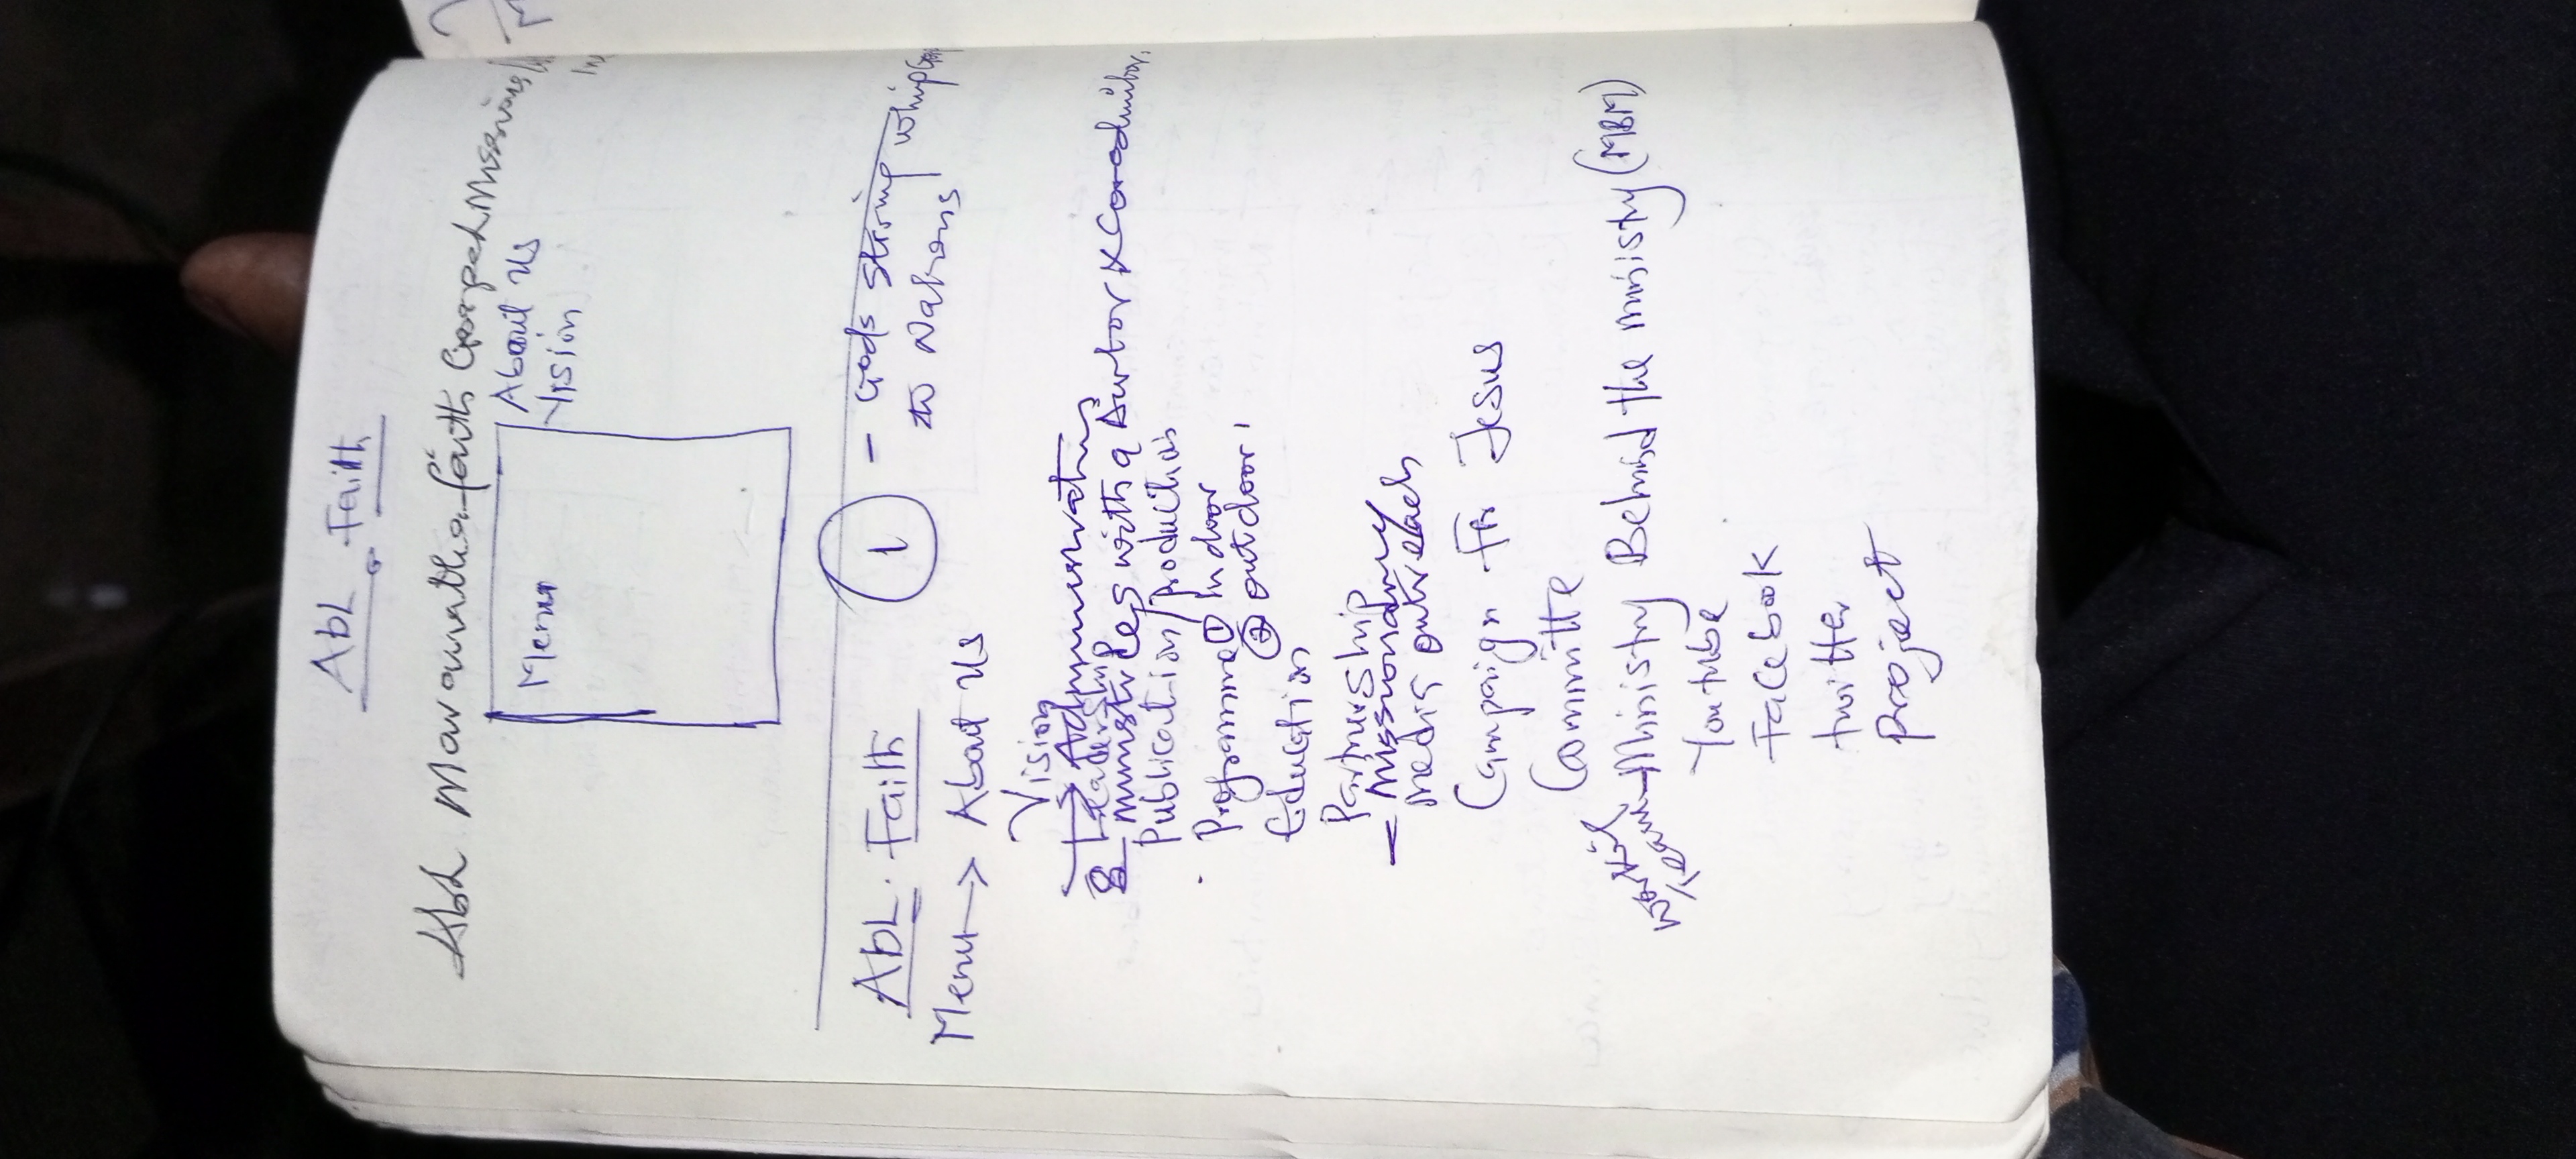 AbL Faith
AbL Maranatha faith Gospel Missions
Menu
About Us
Vision
AbL. Faith
1
- Gods string whip
to Nations
Menu → About Us
Vision
→ Administration
Leadership
8 ministries with a
Publication/productions
Programme ① Indoor
② outdoor
Education
Partnership
- Missionary
Media outreach
Campaign For Jesus
Committe
Working
Team - Ministry Behind the ministry (MBM)
Youtube
Facebook
twitter
Project